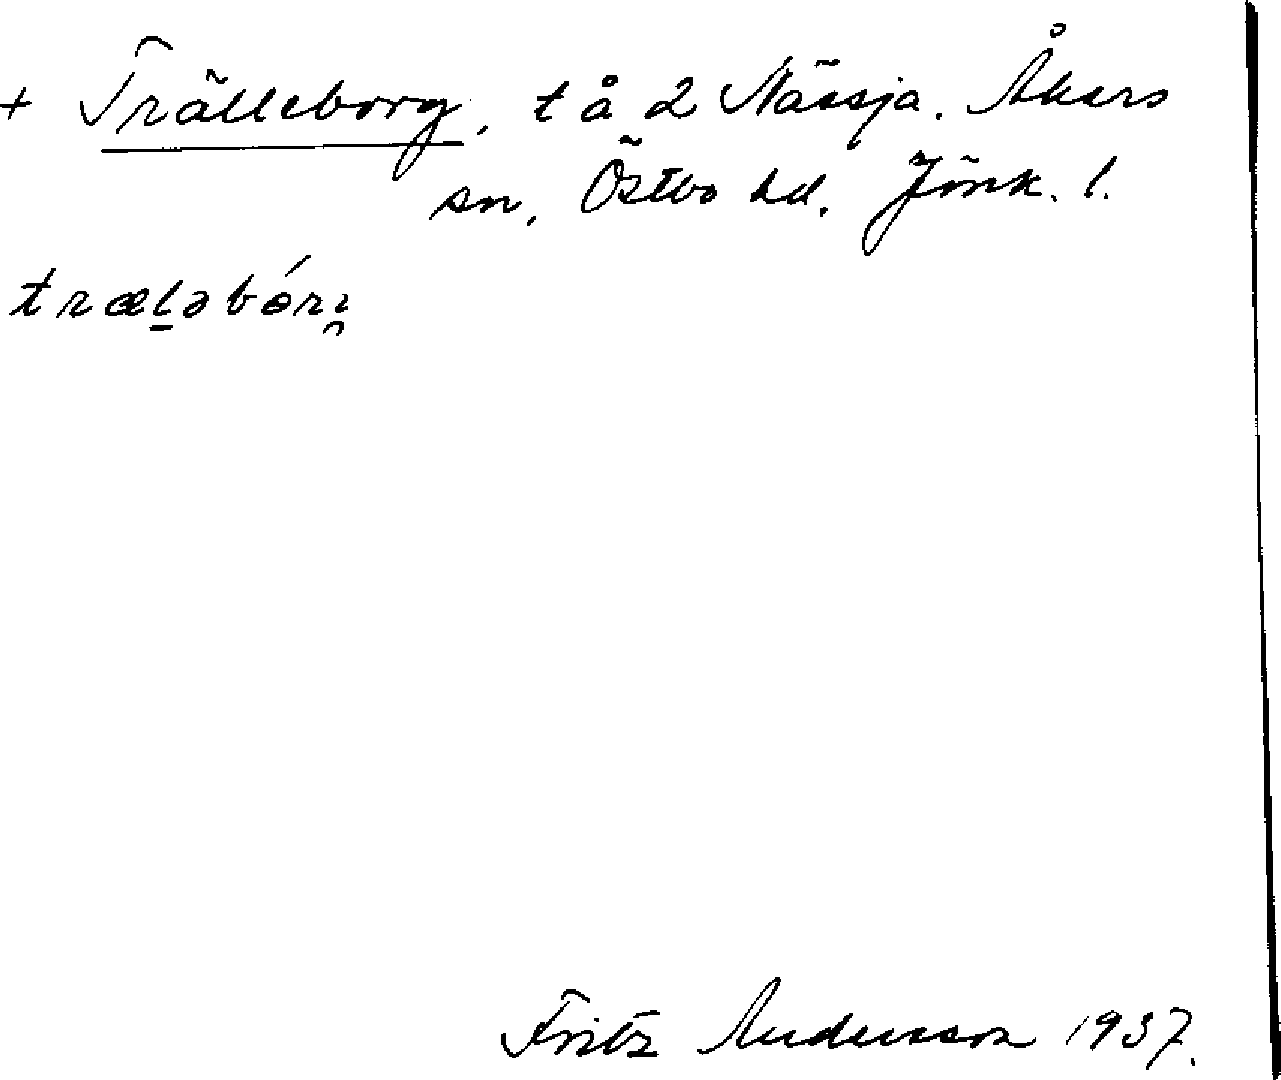 + Trälleborg, t å 2 Nässja. Åkers
sn, Östbo hd. Jönk. l.
træl̠əbórı̯
Fritz Andersson 1937.